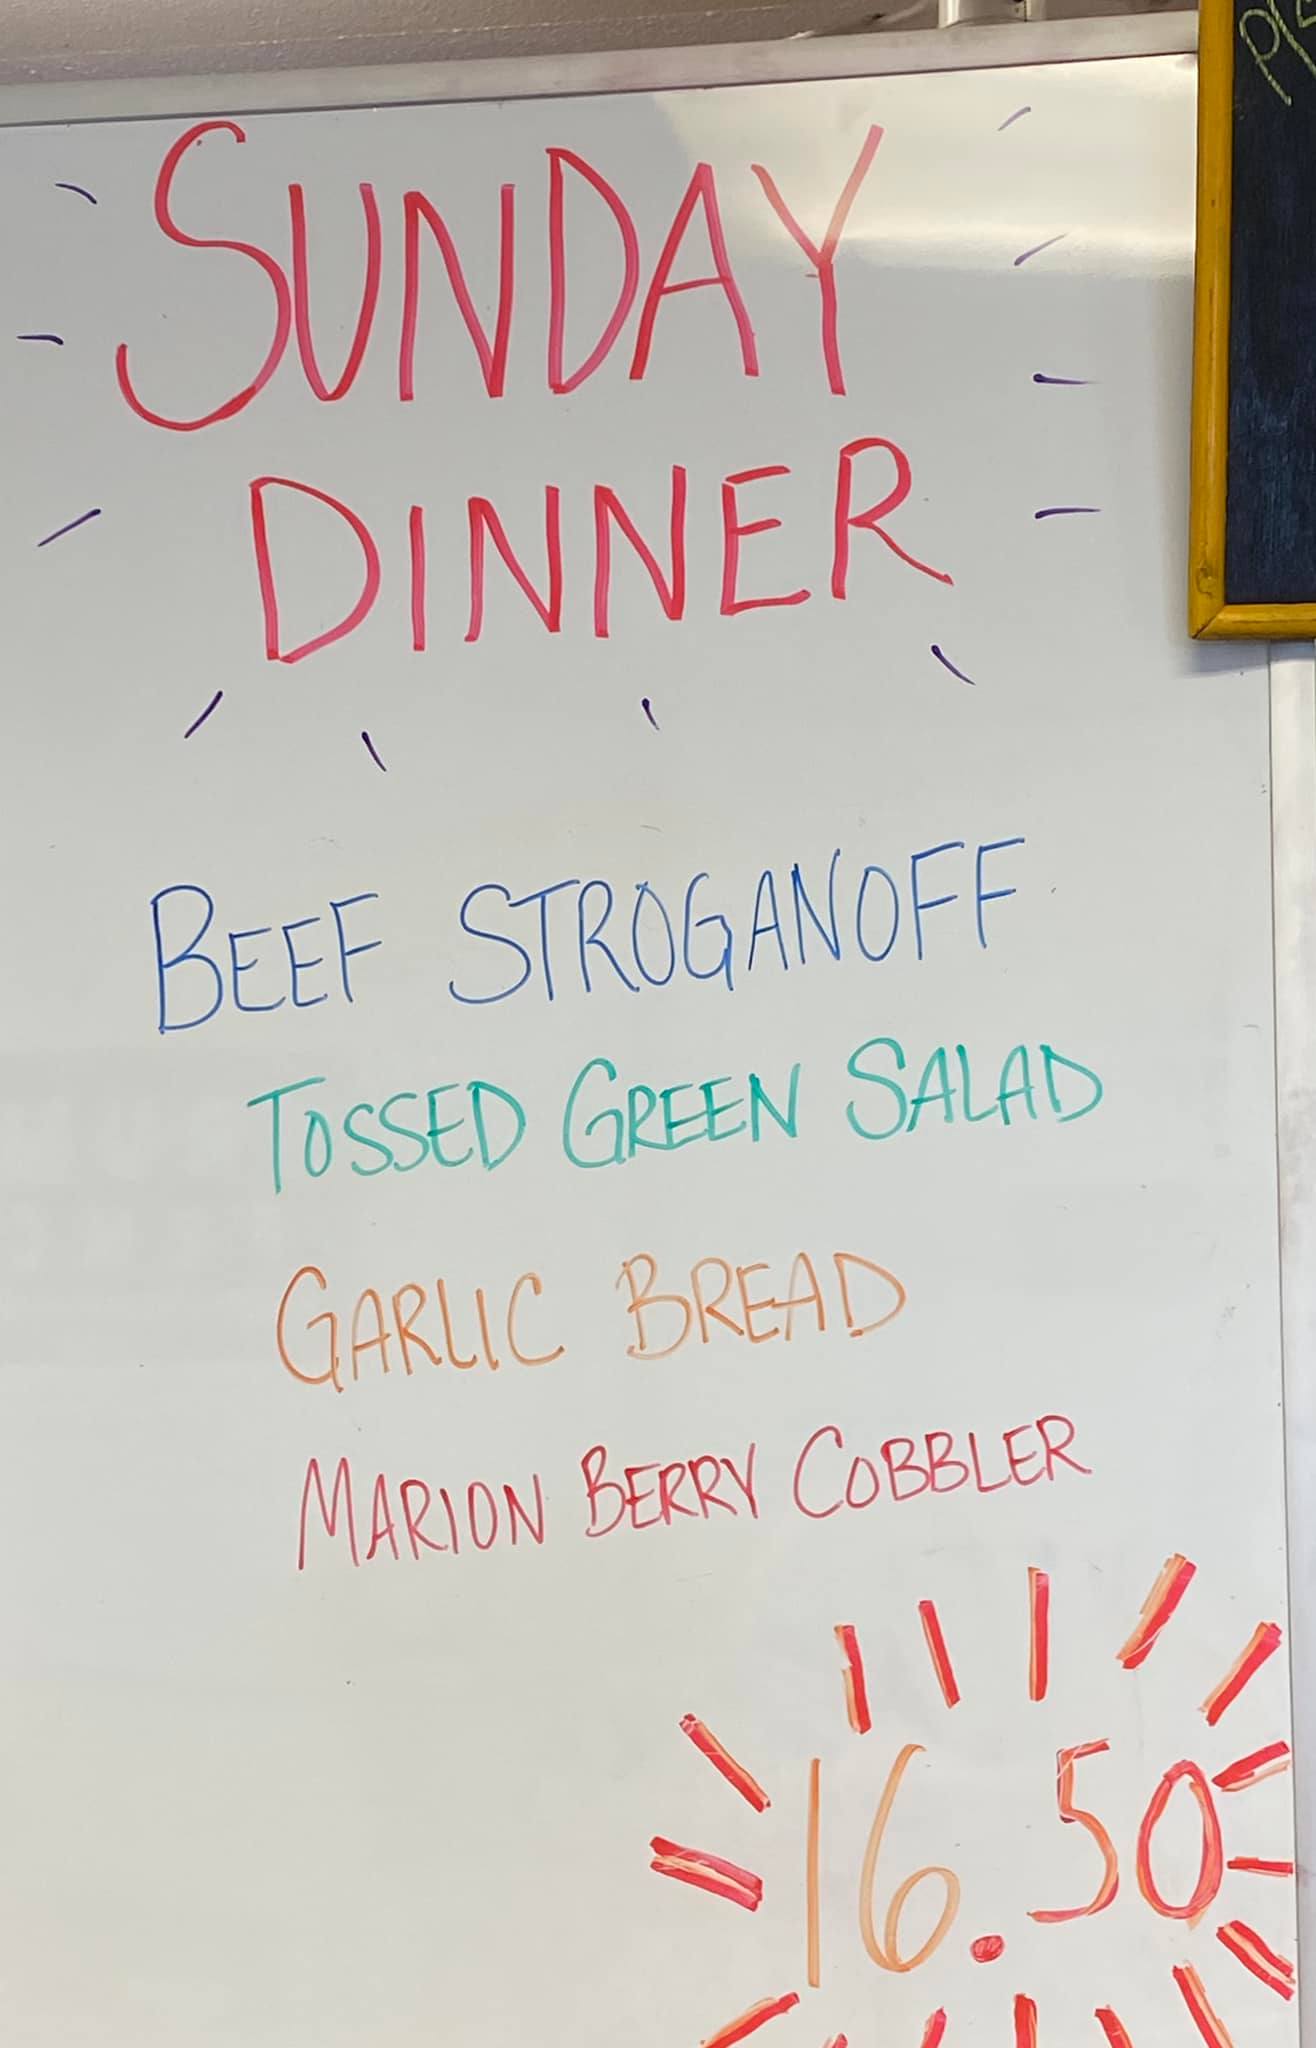 SUNDAY
DINNER
BEEF STROGANOFF
TOSSED GREEN SALAD
GARLIC BREAD
MARION BERRY COBBLER
16.50